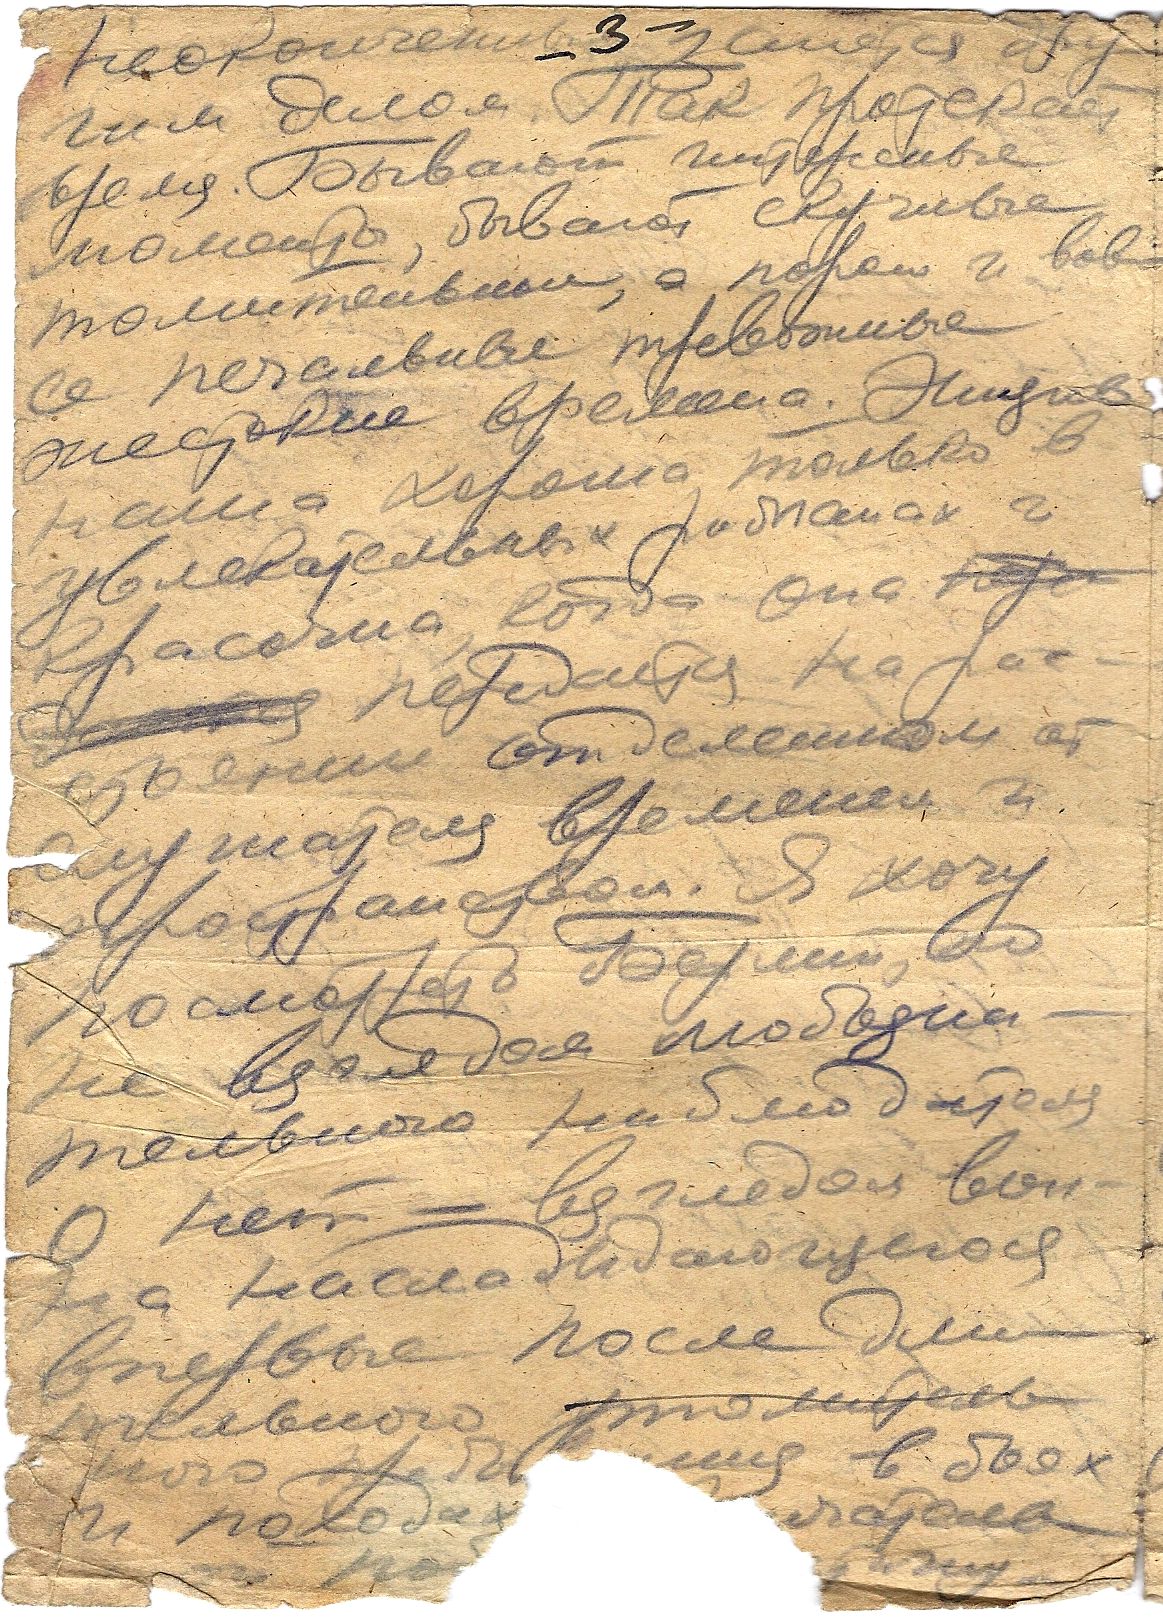 - 3 -
неокончены займется дру
гим делом. Так протекает
время. Бывают интересные
моменты, бывают скучные
томительные, а порой и вов
се печальные тревожные
жестокие времена. Жизнь
наша хороша, только в
увлекательных романах и
красочна, когда она
передается на рас-
стоянии отделенном от
слушателя временем и
пространством. Я хочу
посмотреть Берлин, но
не взглядом любозна-
тельного наблюдателя
О нет — взглядом вои-
на наслаждающегося
впервые после дли-
тельного утомитель
ного пребы ания в боях
и походах чатель